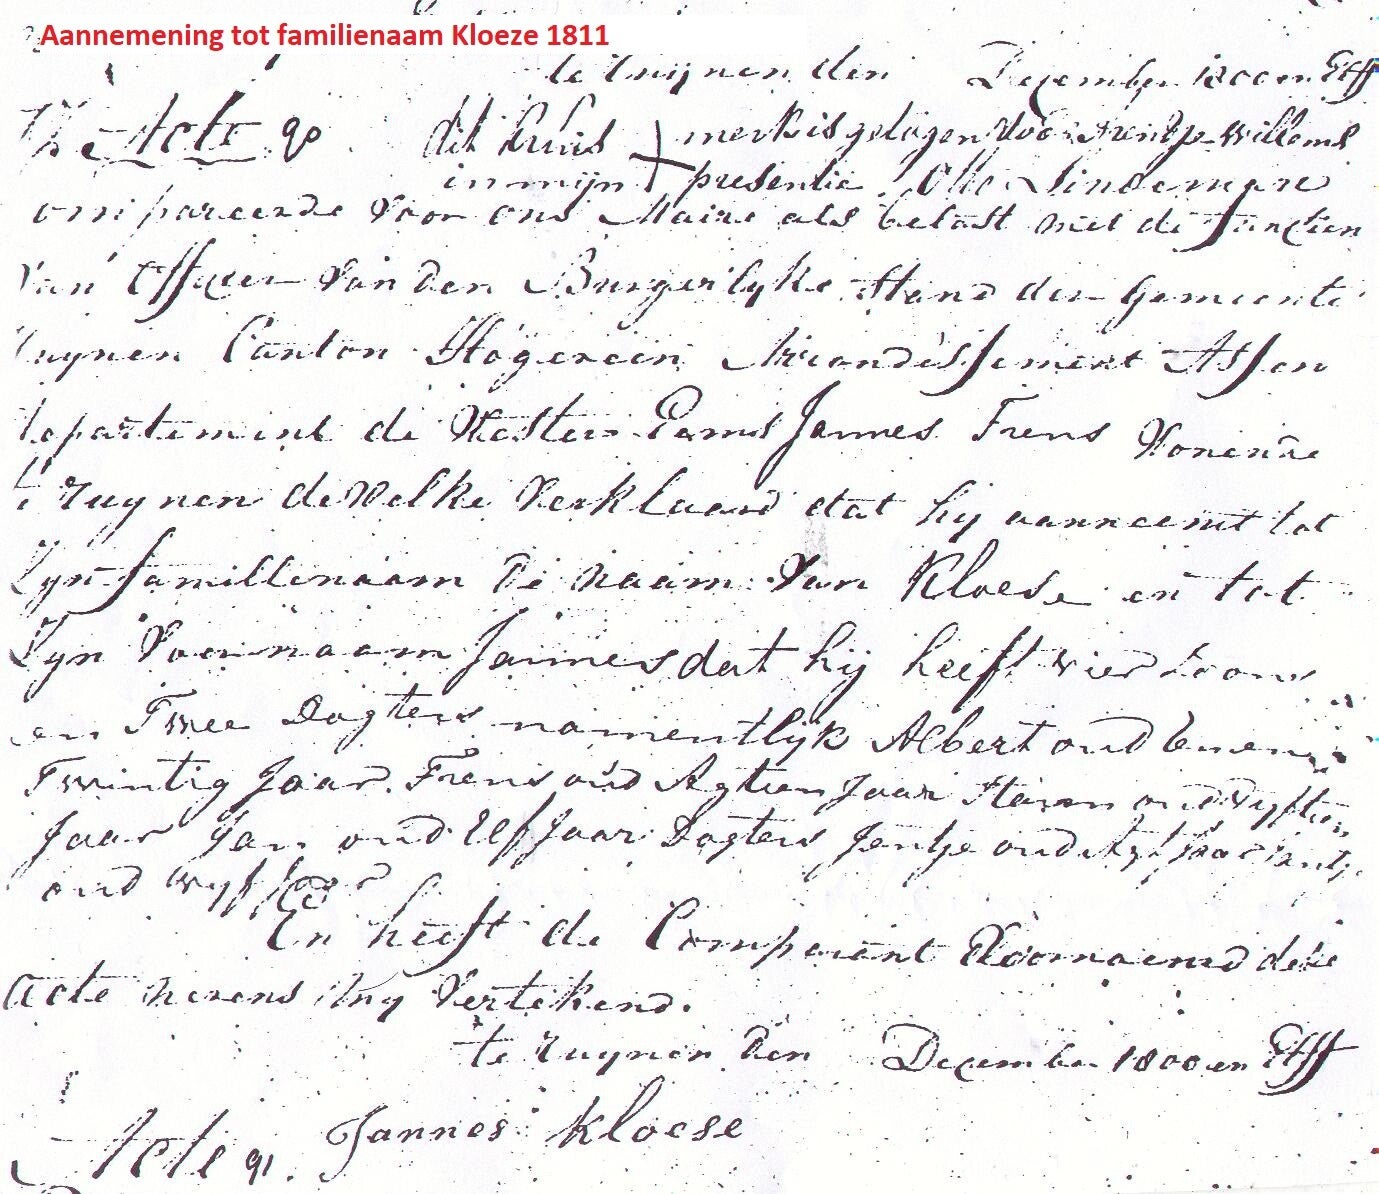 Aannemening tot familienaam Kloeze 1811
te ruijnen den December 1800 en Elff
Acte 90 dit kruis merk is getogen door Arent Willems
in mijn presentie Otto Lindeman
ompareerde voor ons Maire als belast met de functien
van Officier van den Burgerlyke Stand der Gemeente
ruynen Canton Hogeveen Arrondissement Assen
departement de Wester Eems Jannes Frens Wonende
te ruynen de welke verklaard dat hij aanneemt tot
Zyn familienaam de naam van Kloese en tot
Zyn Voornaam Jannes dat hij heeft vier Zoons
en Twee Dogters namentlyk Albert oud Eenen
Twintig Jaar Frens oud Agtien Jaar Harm oud vyftien
Jaar Jan oud Elf Jaar Dogters Jentje oud Jaar
oud vyf Jaar
En heeft de Comparant Voornoemd deze
acte nevens my vertekend.
te ruynen den December 1800 en Elff
Acte 91. Jannes Kloese